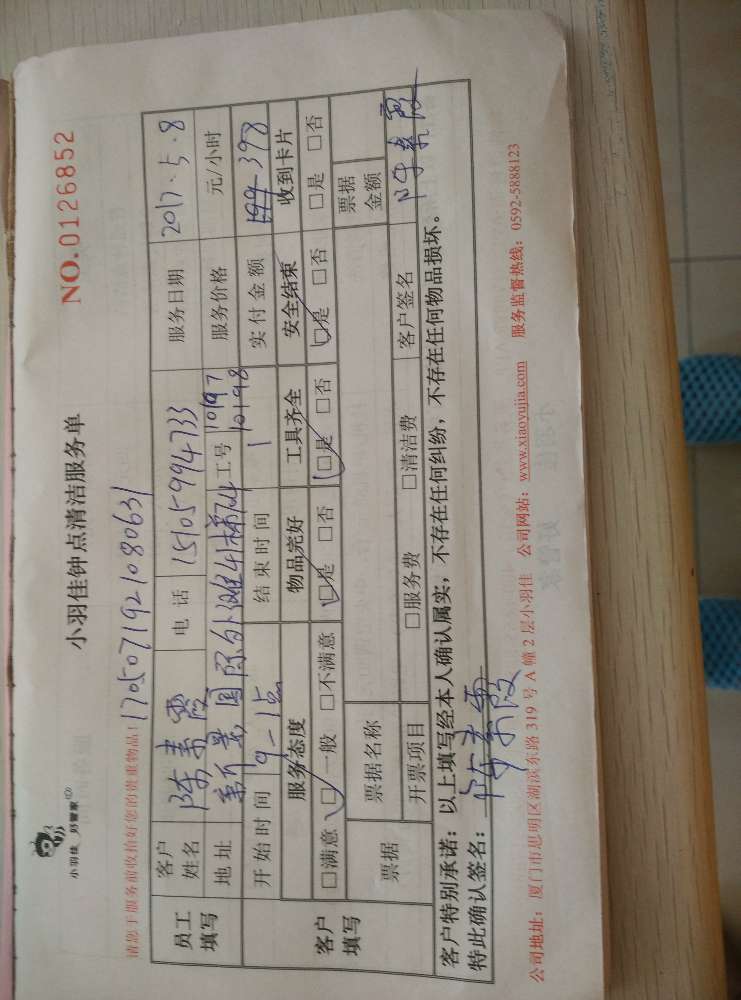 小羽佳 好管家
小羽佳钟点清洁服务单
NO.0126852
请您于服务前收拾好您的贵重物品!
170507192108063
员工填写
客户姓名 陈素霞 电话 15105994733 服务日期 2017.5.8
地址 新景国际外滩4梯 工号 10197 10198 服务价格 元/小时
开始时间 9-1点 结束时间 实付金额 398
客户填写
服务态度 物品完好 工具齐全 安全结束 收到卡片
□满意 □一般 □不满意 □是 □否 □是 □否 □是 □否 □是 □否
票据 票据名称 票据金额
开票项目 □服务费 □清洁费 客户签名 陈素霞
客户特别承诺:以上填写经本人确认属实,不存在任何纠纷,不存在任何物品损坏。
特此确认签名: 陈素霞
公司地址:厦门市思明区湖滨东路 319 号 A 幢 2 层小羽佳 公司网站:www.xiaoyujia.com 服务监督热线:0592-5888123